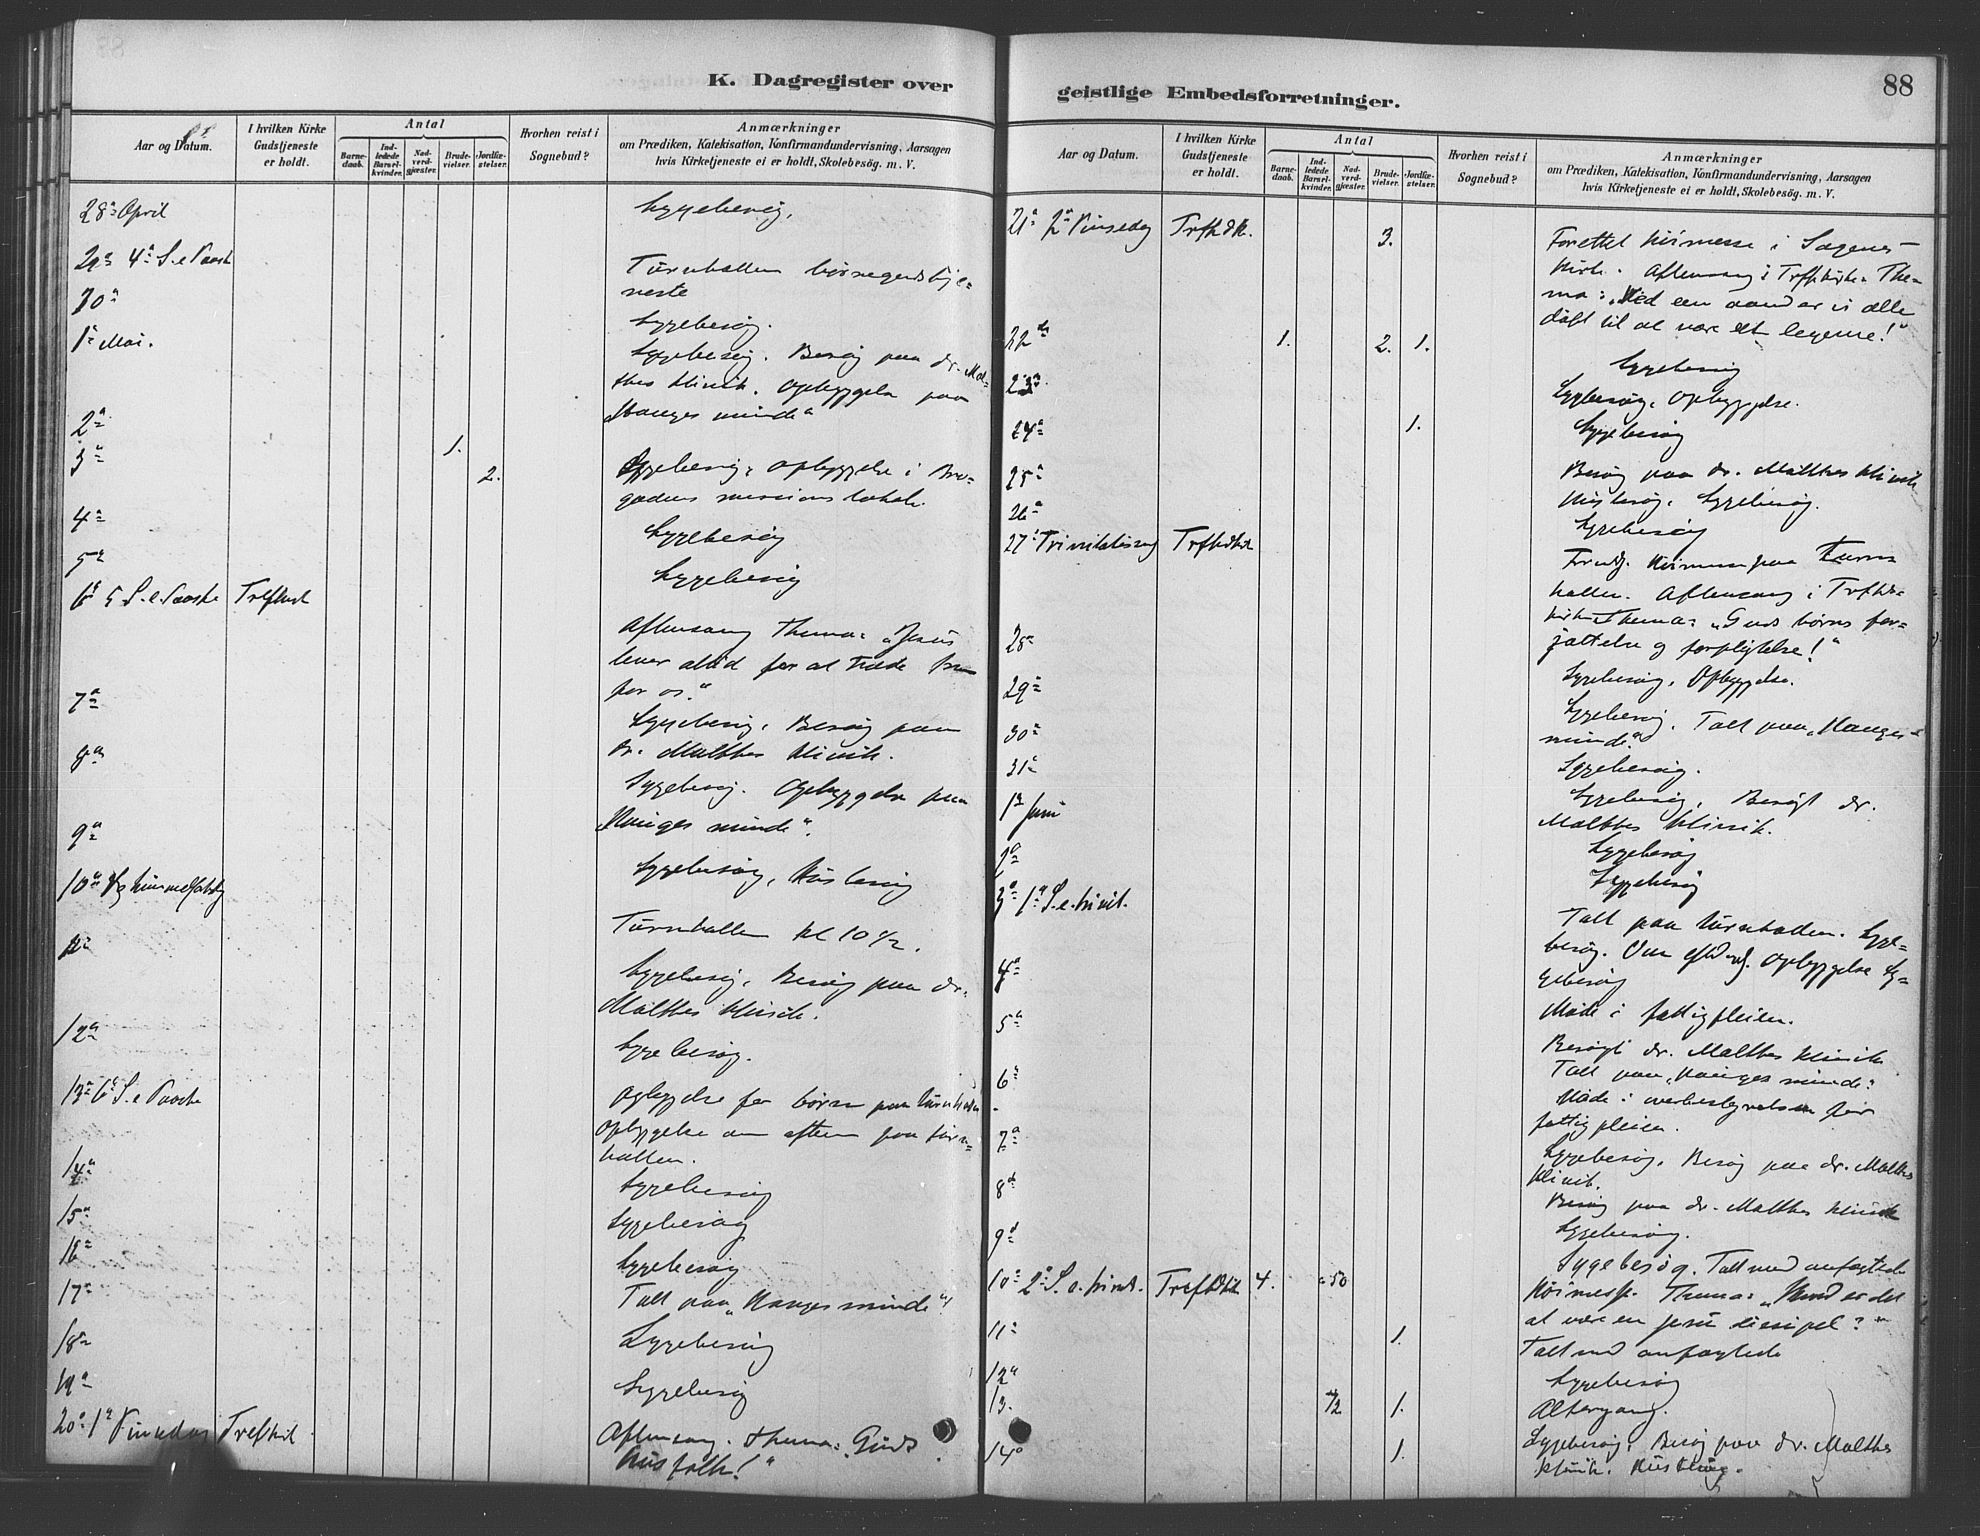 K. Dagregister over
Aar og Datum.
I hvilken Kirke Gudstjeneste er holdt.
Antal
Barne-daab.
Ind-ledede Barsel-kvinder.
Nad-verd-gjæster.
Brude-vielser.
Jordfæ-stelser.
Hvorhen reist i Sognebud?
Anmærkninger
om Prædiken, Katekisation, Konfirmandundervisning, Aarsagen
hvis Kirketjeneste ei er holdt, Skolebesög. m. V.
28a April Sygebesøg.
29a 4a S. e Paaske Turnhallen børnegudstje-
neste
30a Sygebesøg.
1a Mai. Sygebesøg. Besøg paa dr. Mal-
thes klinik. Opbyggelse paa
„Hauges minde“
2a 1.
3a 2. Sygebesøg, opbyggelse i Bre-
gadens missionslokale.
4a Sygebesøg
5a Sygebesøg
6a 5 S. e. Paaske Aftensang Thema: „Jesus
lever altid for at træde frem
for os.“
7a Sygebesøg. Besøg paa
dr. Malthes klinik.
8a Sygebesøg. Opbyggelse paa
„Hauges minde“.
9a Sygebesøg, Husbesøg
10a Turnhallen kl 10 1/2.
11a Sygebesøg, Besøg paa dr.
Malthes klinik.
12a Sygebesøg.
13a 6a S. e Paaske Opbyggelse for børn paa
Opbyggelse om aften paa turn-
hallen.
14a Sygebesøg
15a Sygebesøg
16a Sygebesøg
17a Talt paa „Hauges minde“
18a Sygebesøg
19a Sygebesøg
20a 1a Pinsedag Aftensang. Thema: „Guds
husfolk!“
geistlige Embedsforretninger.
88
Aar og Datum.
I hvilken Kirke Gudstjeneste er holdt.
Antal
Barne-daab.
Ind-ledede Barsel-kvinder.
Nad-verd-gjæster.
Brude-vielser.
Jordfæ-stelser.
Hvorhen reist i Sognebud?
Anmærkninger
om Prædiken, Katekisation, Konfirmandundervisning, Aarsagen
hvis Kirketjeneste ei er holdt, Skolebesög. m. V.
21a 2a Pinsedag 3. Forettet høimesse i Sagenes
kirke. Aftensang i The-
ma: „Ved een aand er vi alle
døbt til at være et legeme!“
22de 1. 2. 1. Sygebesøg
23a Sygebesøg, Opbyggelse.
24a 1. Sygebesøg
25a Besøg paa dr. Malthes klinik
Husbesøg, Sygebesøg.
26a Sygebesøg
27a Høimesse paa Turn-
hallen. Aftensang i
kirke Thema: „Guds børns for-
jættelse og forpligtelse!“
28a Sygebesøg, Opbyggelse.
29a Sygebesøg. Talt paa „Hauges
minde“
30a Sygebesøg.
31a Sygebesøg, Besøgt dr.
Malthes klinik.
1a Juni Sygebesøg
2a Sygebesøg
3a 1a S. e. trinit. Talt paa turnhallen. Syge-
besøg. Om Opbyggelse Sy-
gebesøg
4a Møde i fattigpleien.
5a Besøgt dr. Malthes klinik
Talt paa „Hauges minde“
6a Møde i overbestyrelsen for
fattigpleien.
7a Sygebesøg. Besøg paa dr. Malthes
klinik.
8de Besøg paa dr. Malthes klinik
9d Sygebesøg.
10a 2a S. e. trinit. 4. 50 Sygebesøg. Talt med anfægtede
Høimesse. Thema: „Hvad er det
at være en Jesu discipel?“
11a 1. Talt med anfægtede
12a Sygebesøg
13. 12 1. Altergang.
14a 1. Sygebesøg, Besøg paa dr. Malthes
klinik. Husbesøg.